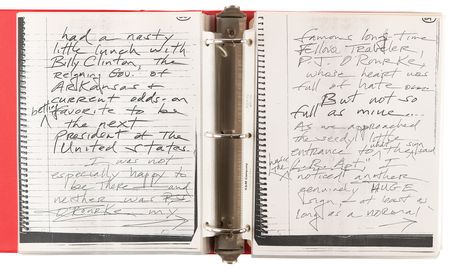 had a nasty
little lunch with
Billy Clinton, the
reigning Gov. of
Arkansas &
current odds-on
betting
favorite to be
the next
President of the
United states.
I was not
especially happy to
be there — and
neither was
O'Rourke, my
famous long-time
Fellow Traveler,
P.J. O'Rourke,
whose heart was
full of hate
But not so
full as mine...
As we approached
the seedy little
entrance to
I
noticed another
genuinely HUGE
sign, at least as
long as a normal